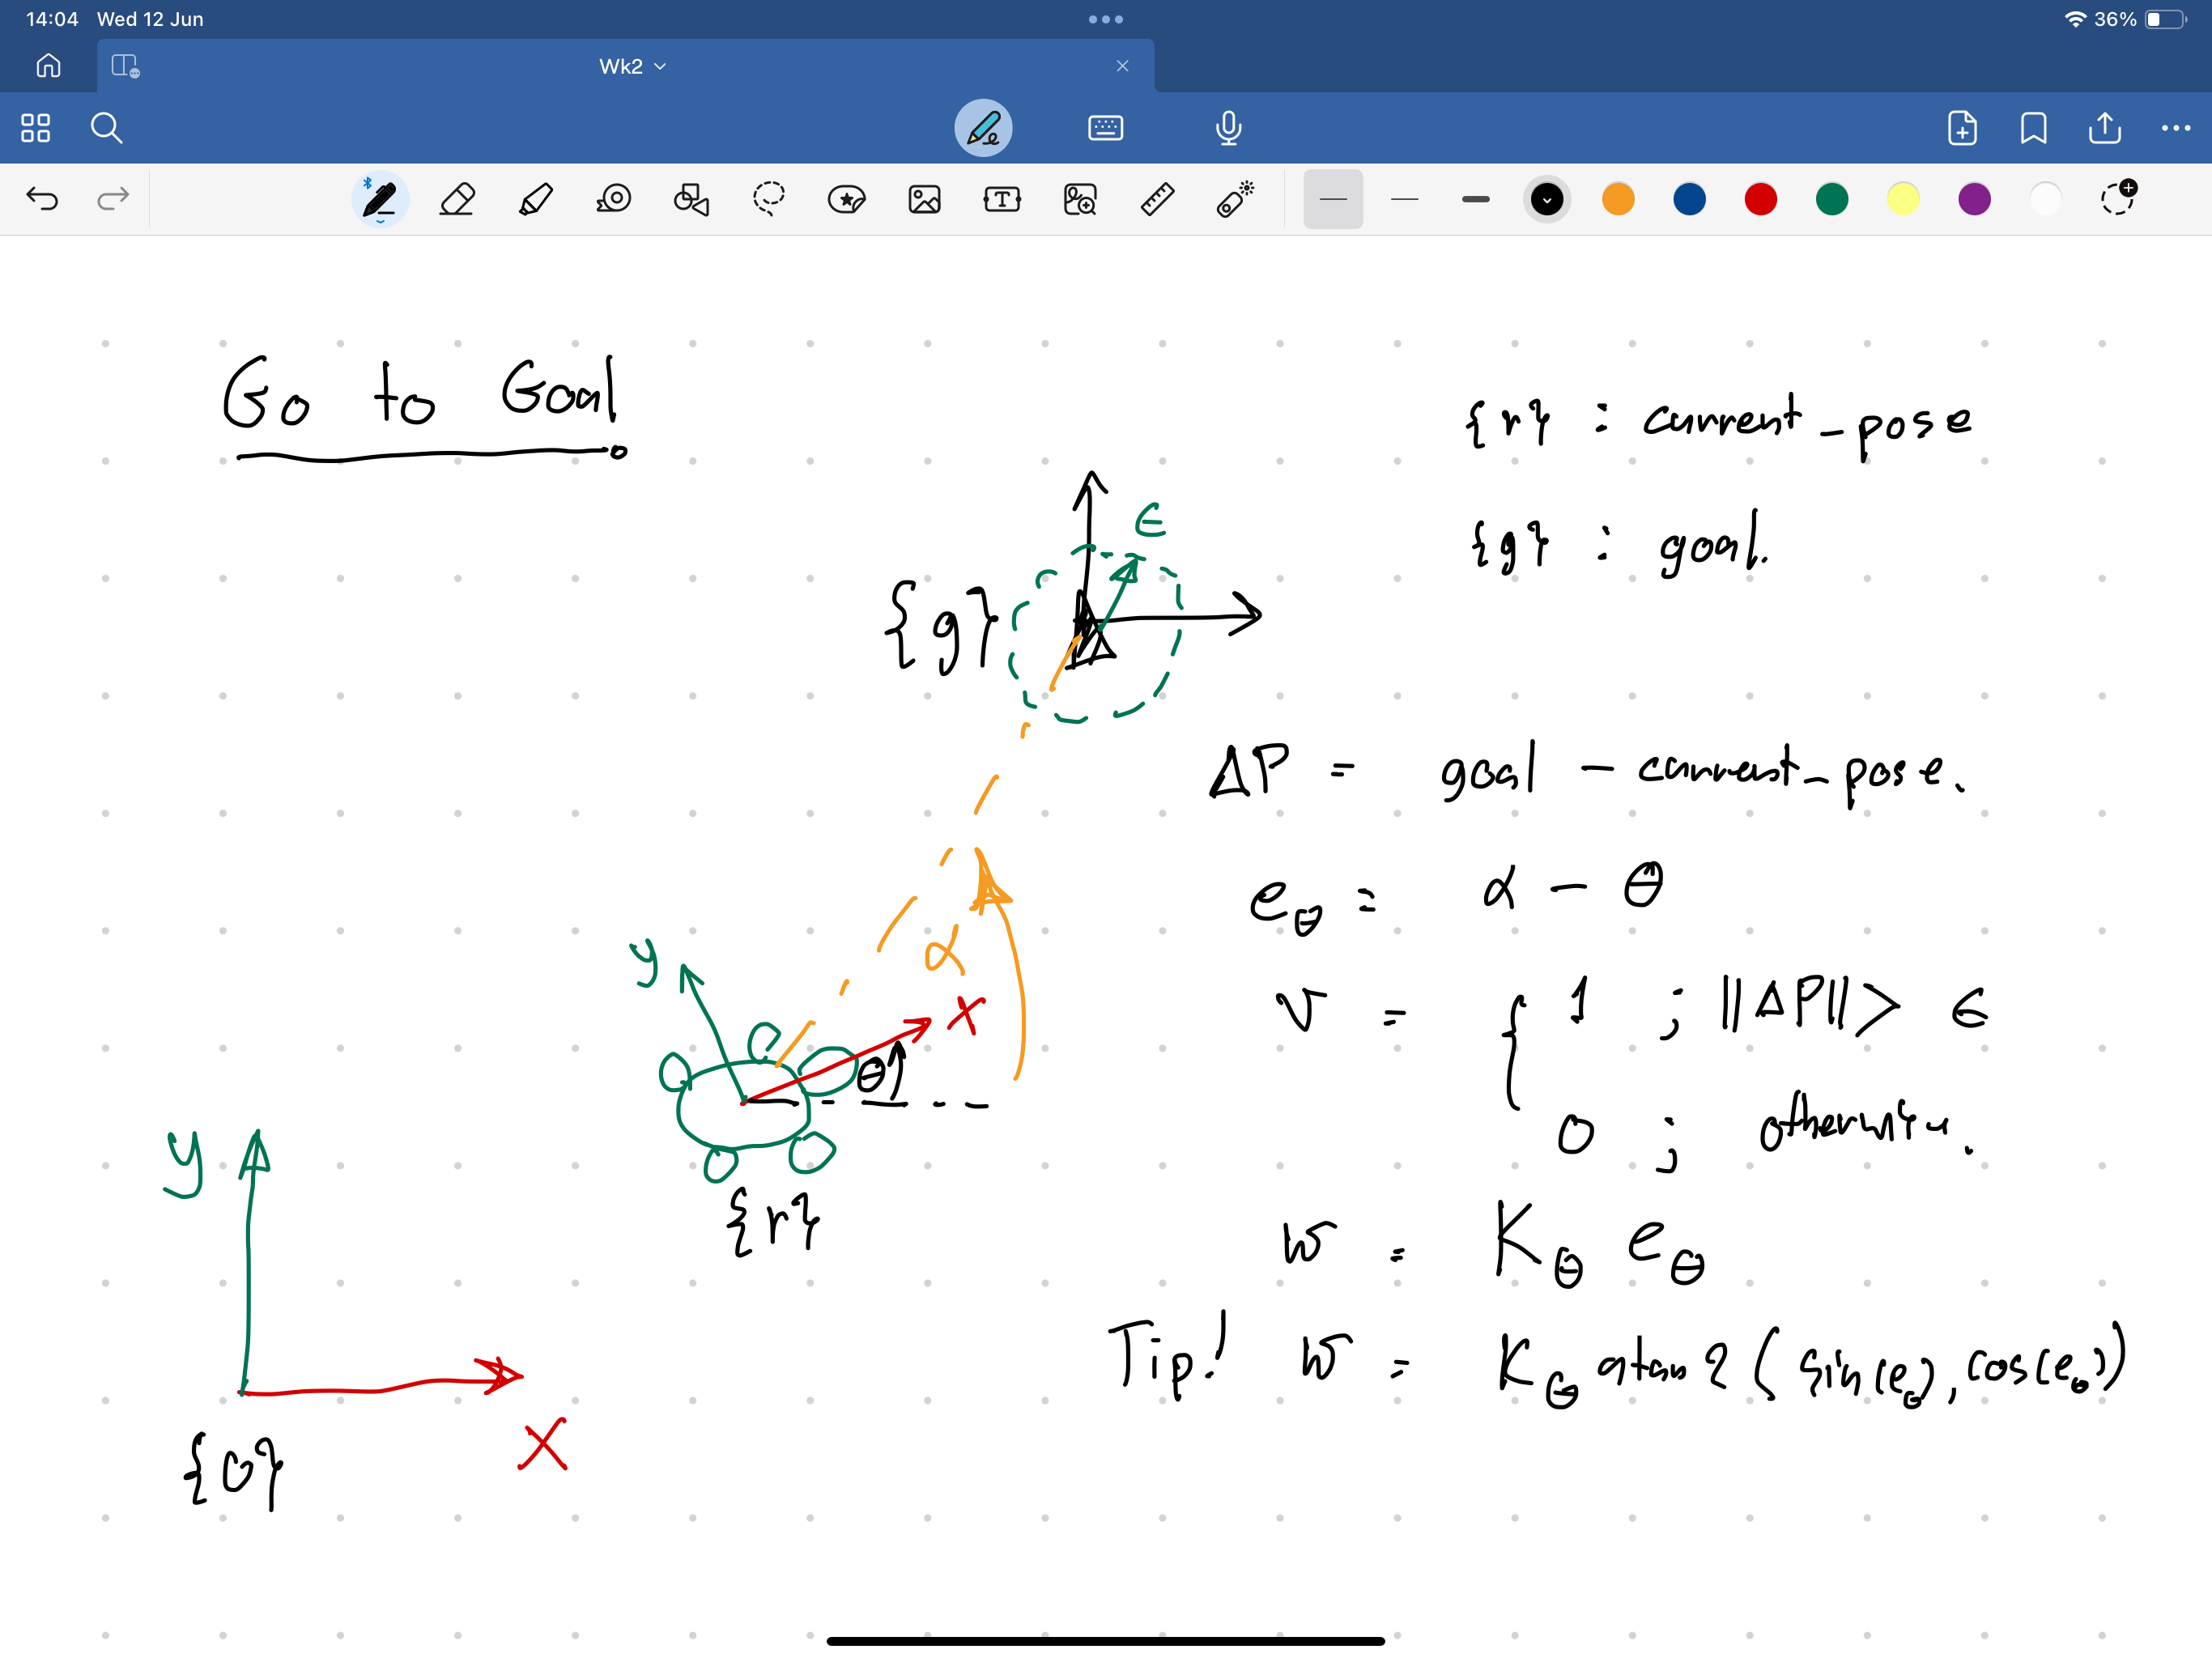 14:04 Wed 12 Jun
36%
Wk2
Go to Goal
{r} : current_pose
{g} : goal.
ϵ
{g}
ΔP = goal - current_pose.
e_θ = α - θ
α
y
x
θ
v = { 1 ; ||ΔP|| > ϵ
0 ; otherwise.
y
{r}
w = K_θ e_θ
Tip! w = K_θ atan2(sin(e_θ), cos(e_θ))
X
{o}